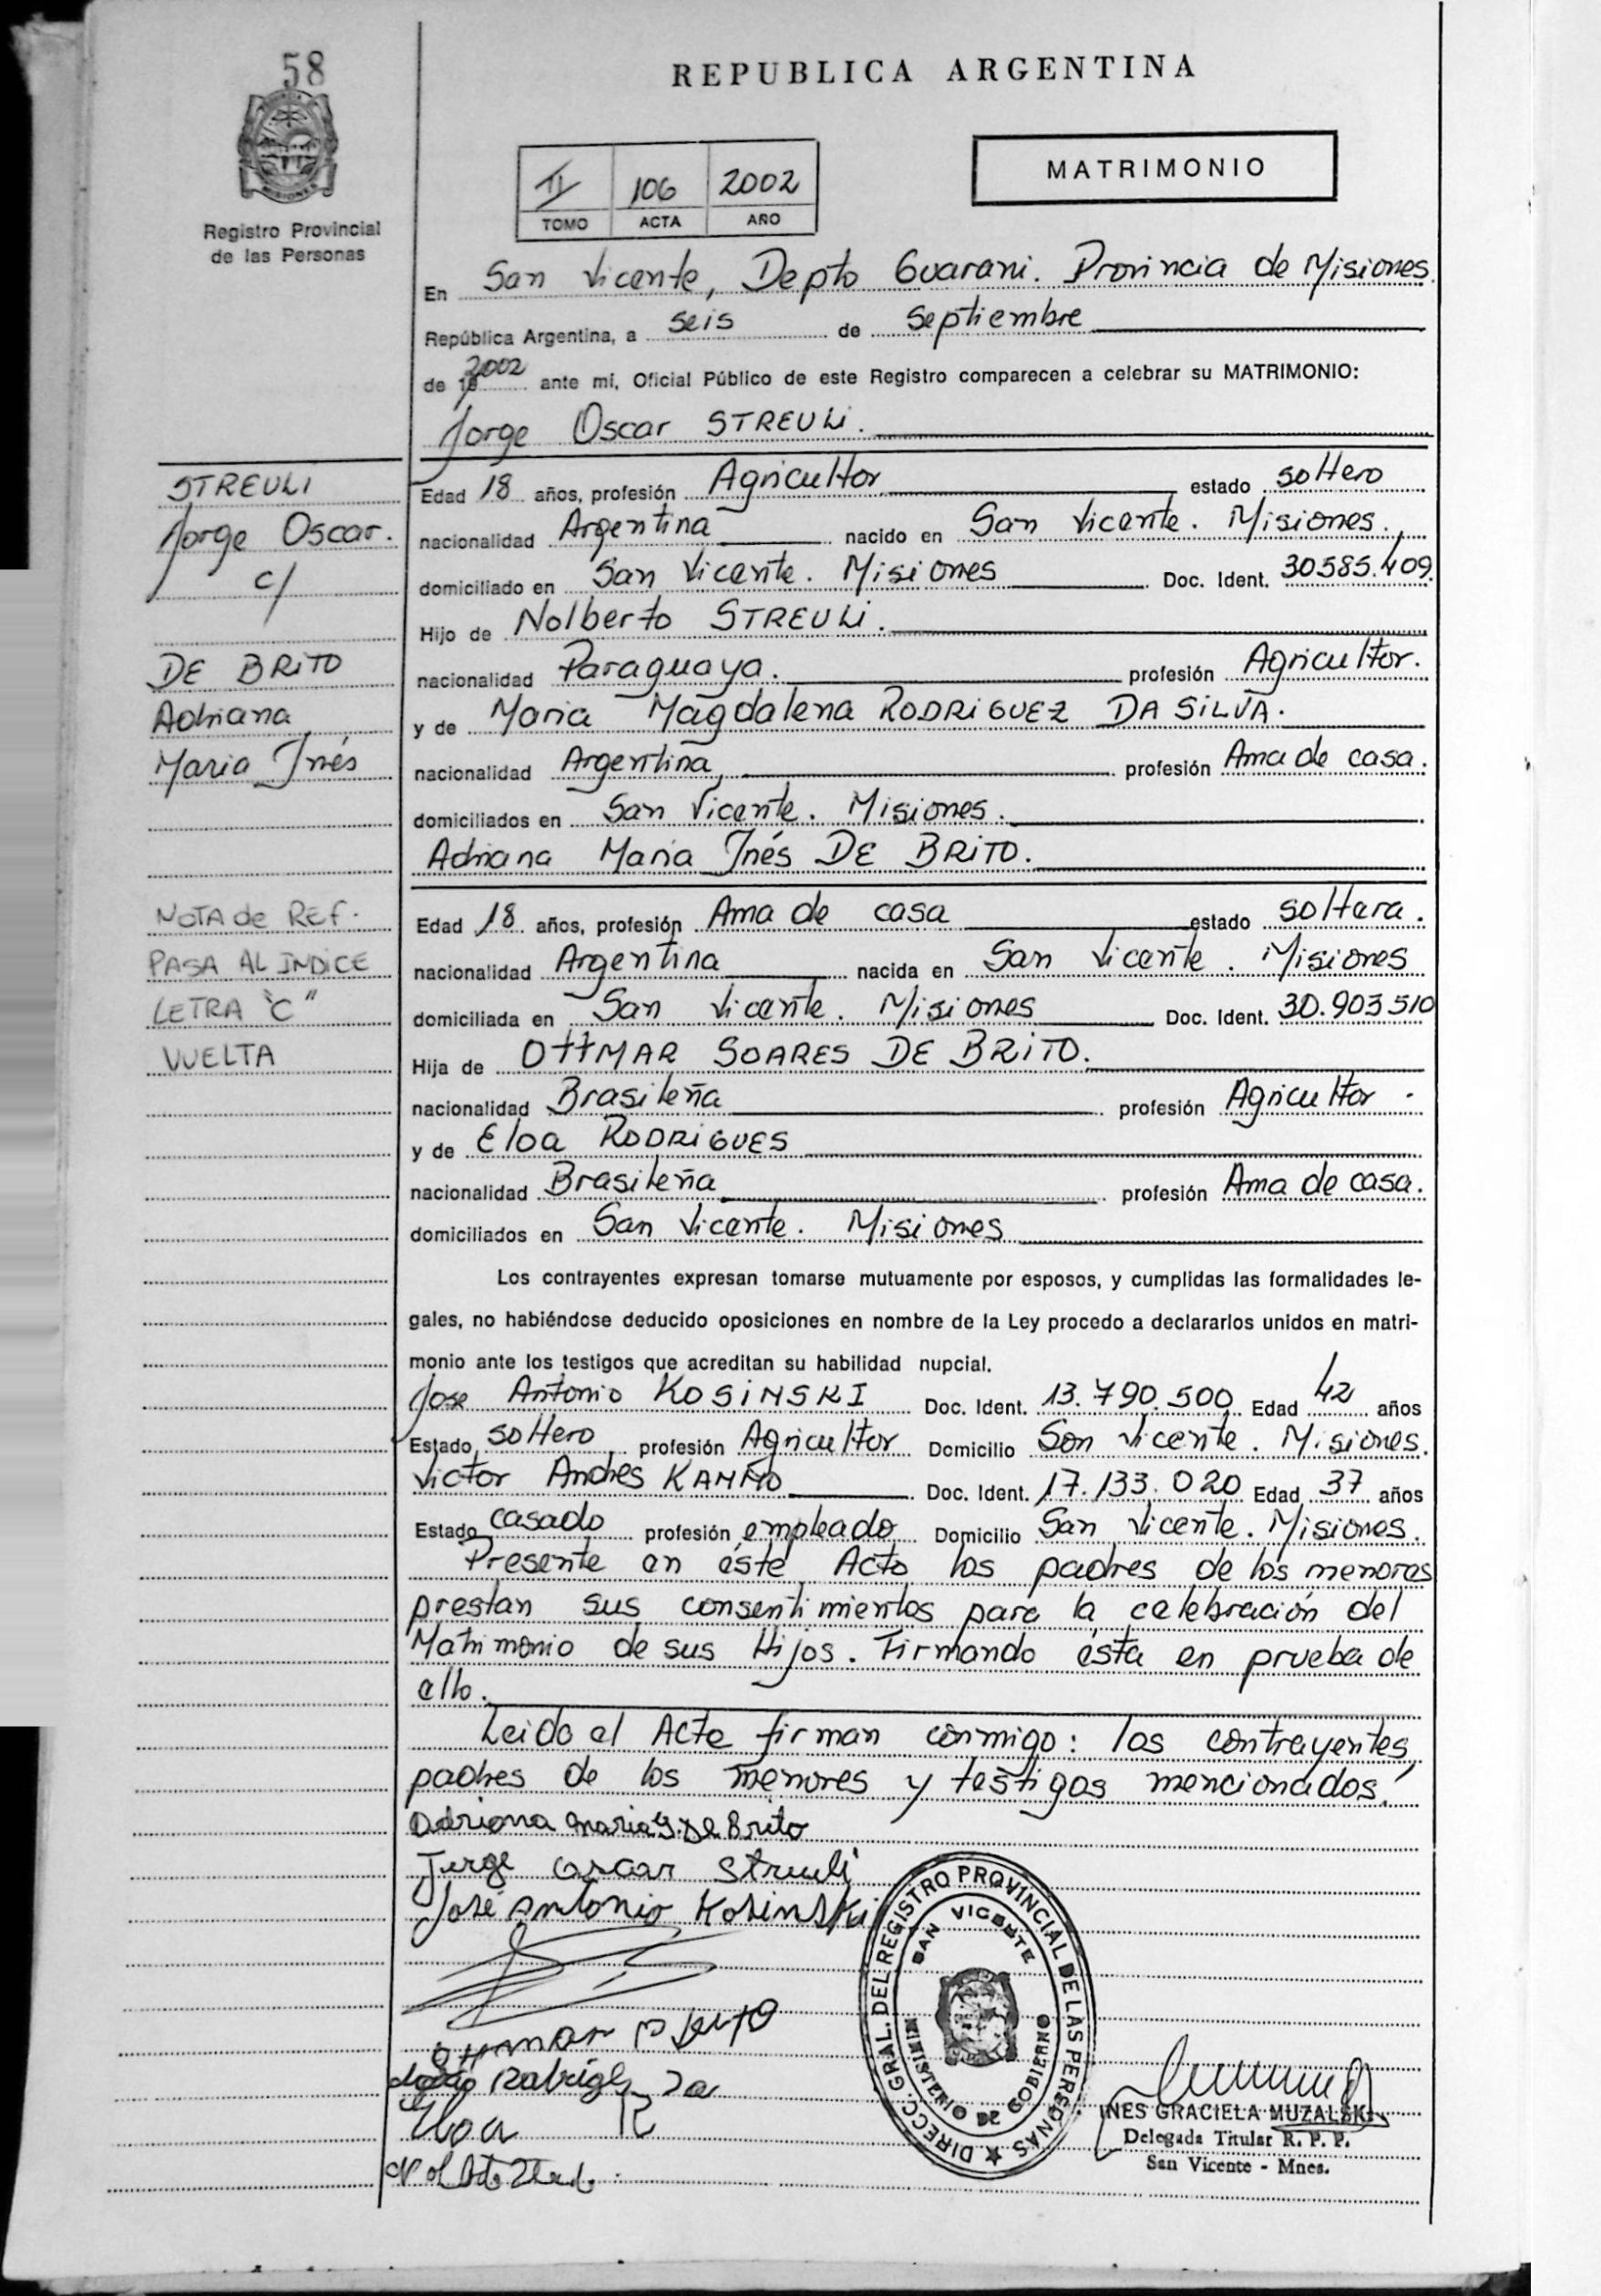 58
REPUBLICA ARGENTINA
MATRIMONIO
II 106 2002
TOMO ACTA AÑO
Registro Provincial
de las Personas
En San Vicente, Depto Guarani. Provincia de Misiones.
República Argentina, a seis de Septiembre
de 19 2002 ante mí, Oficial Público de este Registro comparecen a celebrar su MATRIMONIO:
Jorge Oscar STREULi.
STREULI
Jorge Oscar.
c/
DE BRiTO
Adriana
Maria Inés
NOTA de REF.
PASA AL INDiCE
LETRA "C"
VUELTA
Edad 18 años, profesión Agricultor estado soltero
nacionalidad Argentina nacido en San Vicente. Misiones.
domiciliado en San Vicente. Misiones Doc. Ident. 30585.409.
Hijo de Nolberto STREULi.
nacionalidad Paraguaya. profesión Agricultor.
y de Maria Magdalena RODRiGUEZ DA SiLVA.
nacionalidad Argentina, profesión Ama de casa.
domiciliados en San Vicente. Misiones.
Adriana Maria Inés DE BRiTO.
Edad 18 años, profesión Ama de casa estado soltera.
nacionalidad Argentina nacida en San Vicente. Misiones
domiciliada en San Vicente. Misiones Doc. Ident. 30.903510
Hija de OttMAR SOARES DE BRiTO.
nacionalidad Brasileña profesión Agricultor.
y de Eloa RODRiGUES
nacionalidad Brasileña profesión Ama de casa.
domiciliados en San Vicente. Misiones
Los contrayentes expresan tomarse mutuamente por esposos, y cumplidas las formalidades le-
gales, no habiéndose deducido oposiciones en nombre de la Ley procedo a declararlos unidos en matri-
monio ante los testigos que acreditan su habilidad nupcial.
Jose Antonio KOSiNSKI Doc. Ident. 13.790.500 Edad 42 años
Estado soltero profesión Agricultor Domicilio San Vicente. Misiones.
Victor Andres Doc. Ident. 17.133.020 Edad 37 años
Estado casado profesión empleado Domicilio San Vicente. Misiones.
Presente en éste Acto los padres de los menores
prestan sus consentimientos para la celebración del
Matrimonio de sus Hijos. Firmando ésta en prueba de
ello.
Leido el Acta firman conmigo: los contrayentes,
padres de los menores y testigos mencionados.
Adriana Maria I. De Brito
Jorge Oscar Streuli
José Antonio Kosinski
Eloa R
DIRECC. GRAL. DEL REGISTRO PROVINCIAL DE LAS PERSONAS
SAN VICENTE
MINISTERIO DE GOBIERNO
INES GRACIELA MUZALSKI
Delegada Titular R. P. P.
San Vicente - Mnes.